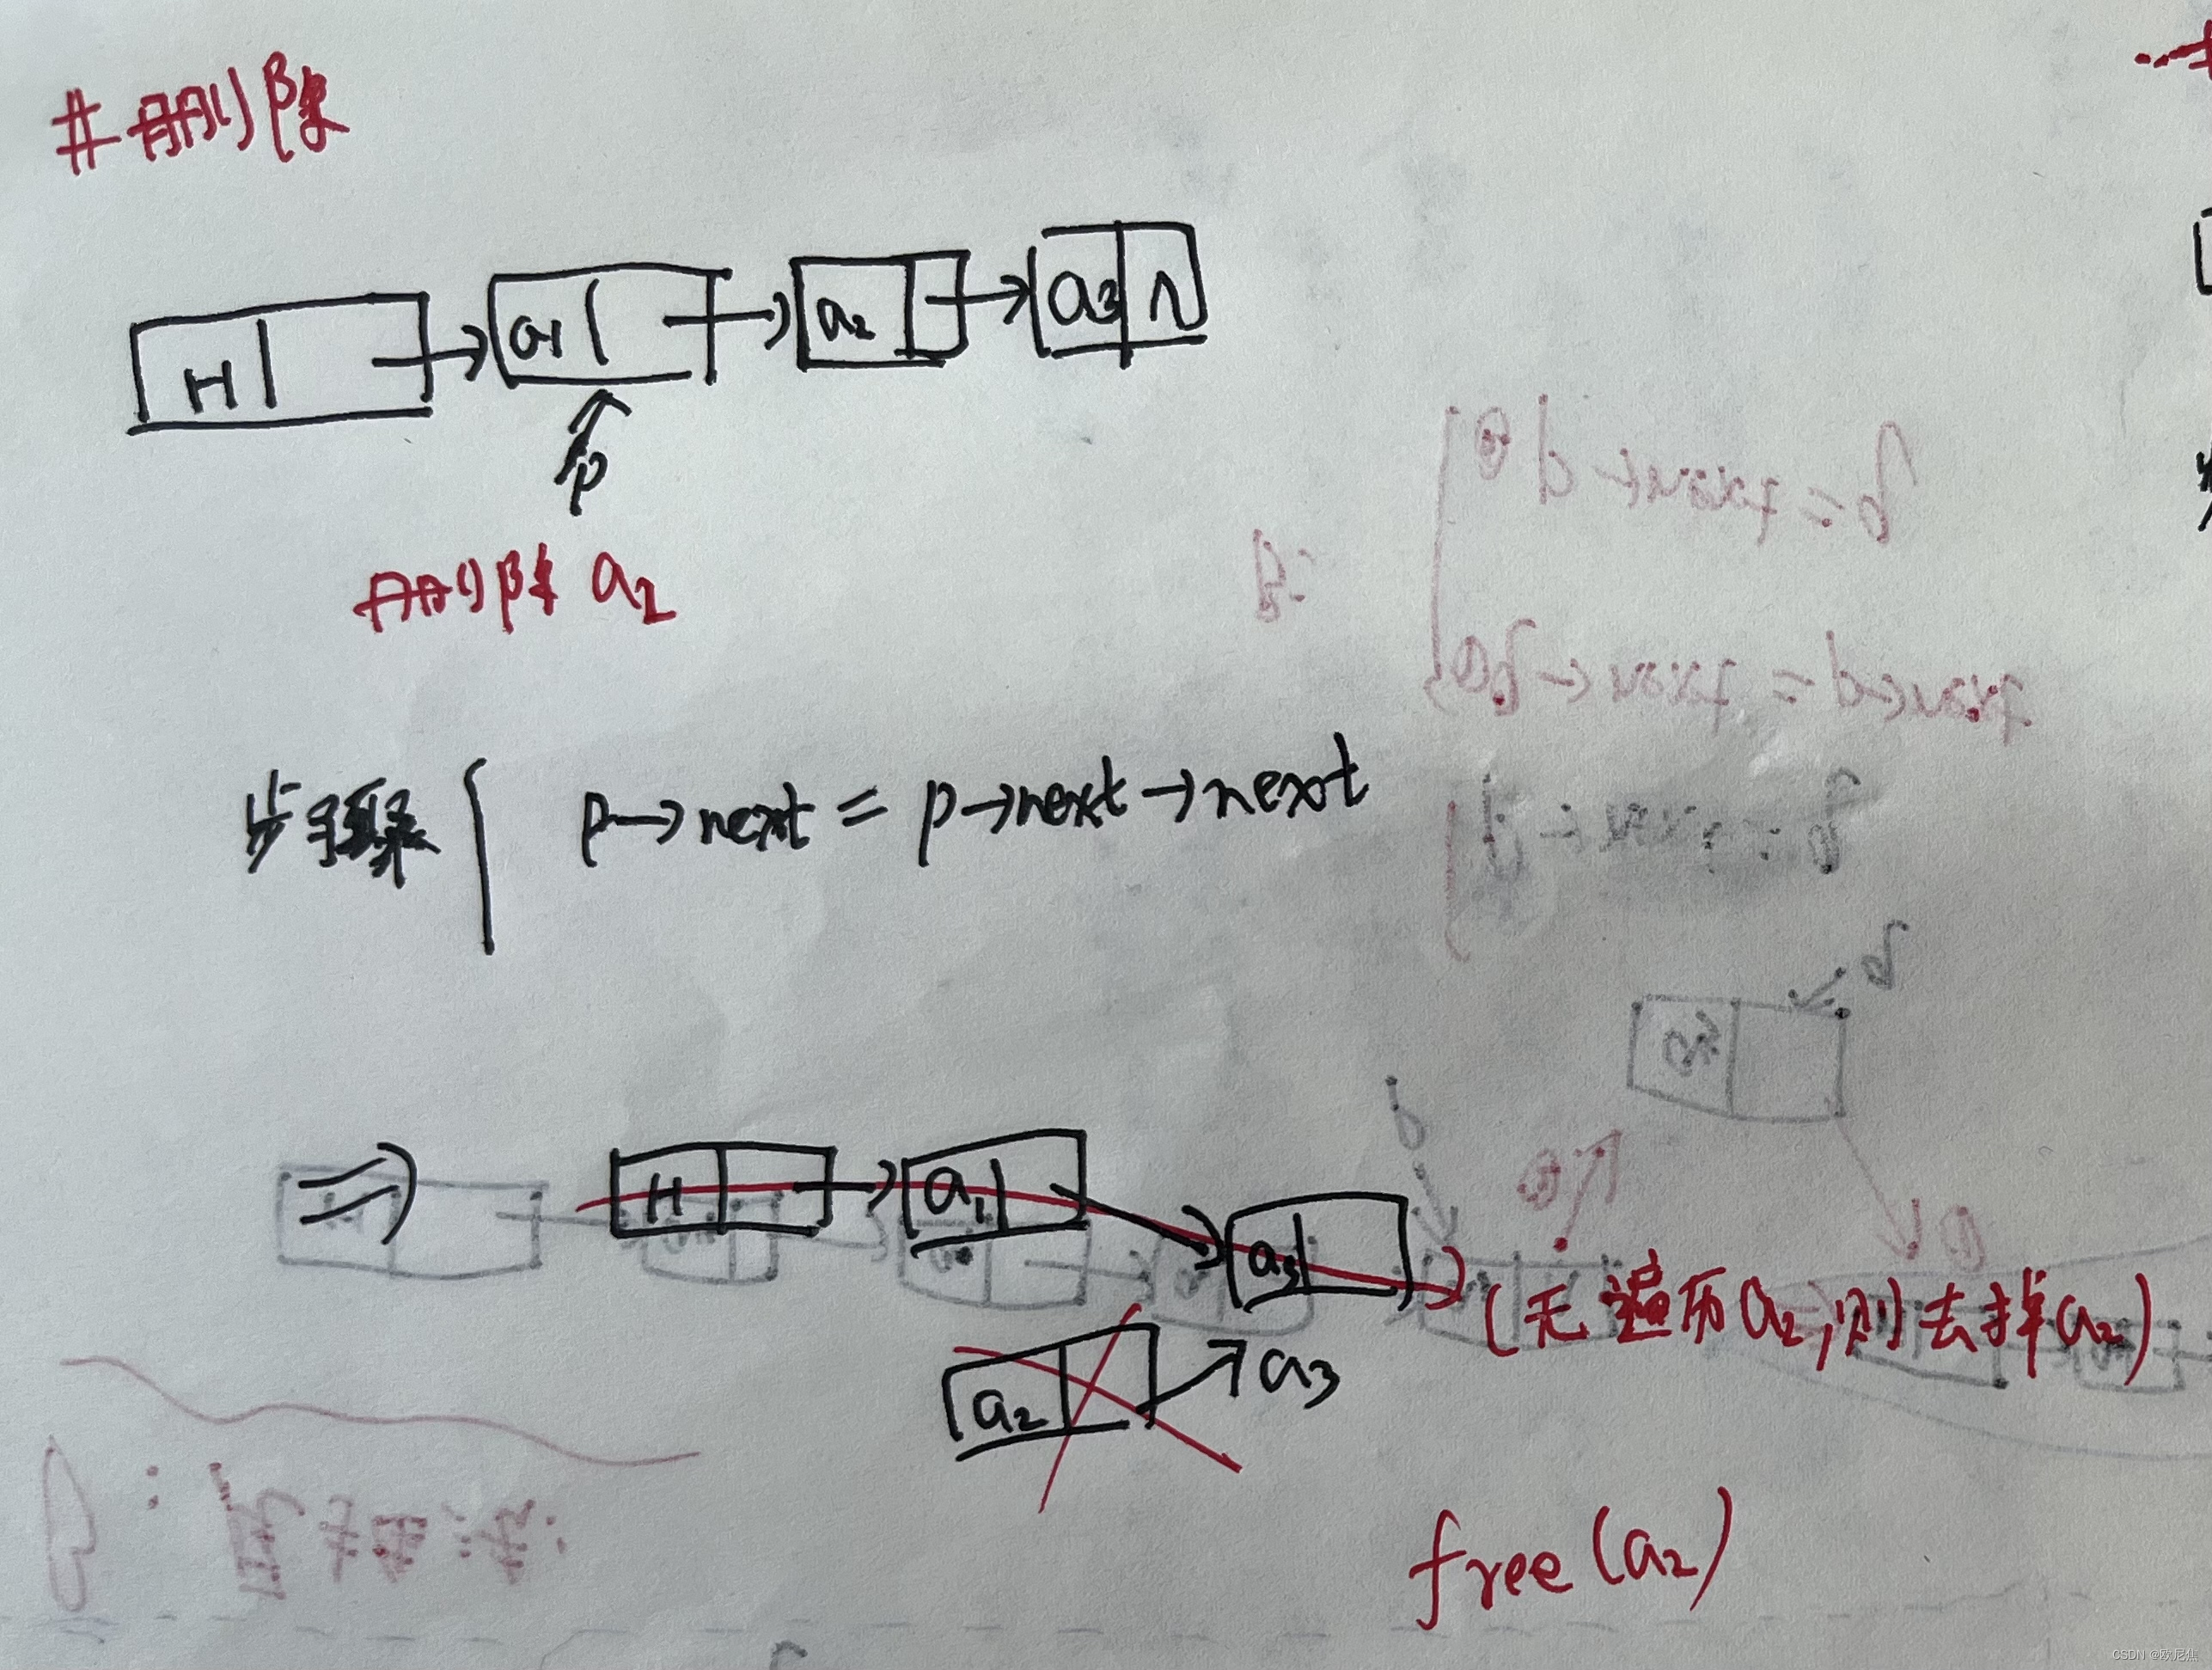 #删除
H a1 a2 a3 ∧
p
删除 a2
步骤 { p→next = p→next→next
⇒ H a1 a3
(无遍历a2,则去掉a2)
a2 → a3
free(a2)
CSDN @欧尼焦